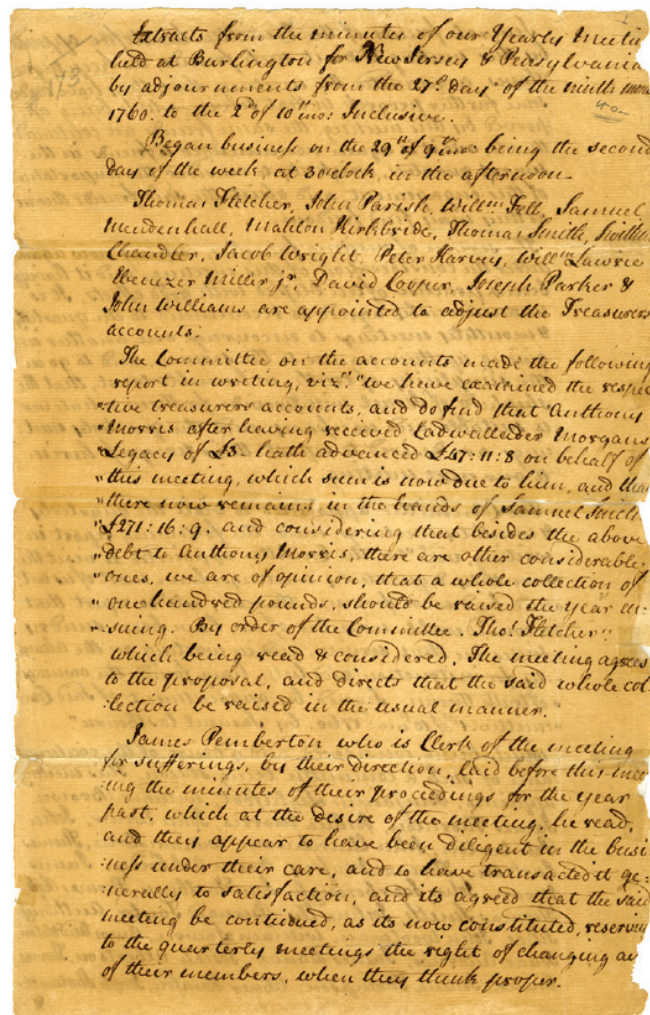 Extracts from the minutes of our Yearly Meetin
held at Burlington for New Jersey & Pensylvania
by adjournments from the 27th day of the ninth mon
1760. to the 2d of 10th mo: Inclusive.
Began business on the 29th of 9th mo: being the second
day of the week at 3 oclock in the afternoon.
Thomas Fletcher, John Parish, Willm Fell, Samuel
Mendenhall, Mahlon Kirkbride, Thomas Smith, Swithin
Chandler, Jacob Wright, Peter Harvey, Willm Lawrie
Ebenezer Miller jr, David Cooper, Joseph Parker &
John Williams are appointed to adjust the Treasurers
accounts.
The Committee on the accounts made the following
report in writing, vizt. "we have examined the respec
"tive treasurers accounts, and do find that Anthony
"Morris after having received Cadwallader Morgans
"Legacy of £3- hath advanced £47:11:8 on behalf of
"this meeting, which sum is now due to him, and that
"there now remains in the hands of Samuel Smith
"£271:16:9. and considering that besides the above
"debt to Anthony Morris, there are other considerable
"ones, we are of opinion, that a whole collection of
"one hundred pounds, should be raised the year en
"suing. By order of the Committee. Thos. Fletcher"
which being read & considered, The meeting agrees
to the proposal, and directs that the said whole col
:lection be raised in the usual manner.
James Pemberton who is Clerk of the meeting
for sufferings, by their direction, laid before this mee
ing the minutes of their proceedings for the year
past, which at the desire of the meeting, he read,
and they appear to have been diligent in the busi
:ness under their care, and to have transacted it ge:
:nerally to satisfaction, and its agreed that the said
meeting be continued, as its now constituted, reserving
to the quarterly meetings the right of changing any
of their members, when they think proper.